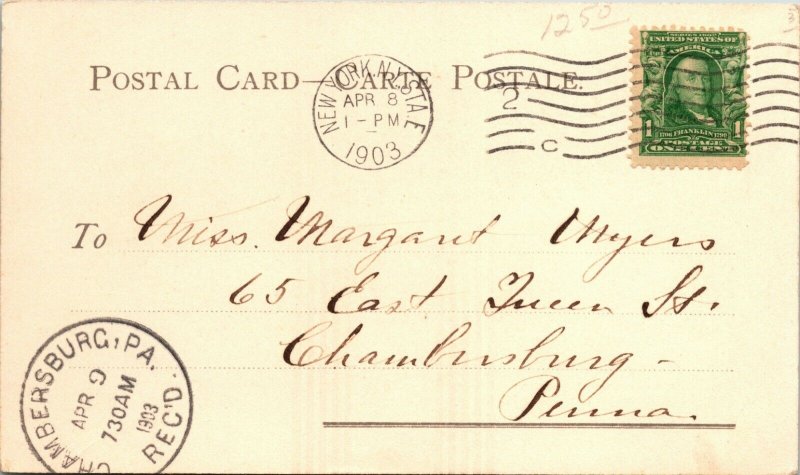 1250
POSTAL CARD—CARTE POSTALE.
NEW YORK, N.Y. STA. E
APR 8
1-PM
1903
2
C
SERIES 1902
UNITED STATES OF
AMERICA
1706 FRANKLIN 1790
1 1
POSTAGE
ONE CENT
To Miss. Margaret Myers
65 East Queen St.
Chambersburg-
Penna.
CHAMBERSBURG, PA.
APR 9
730AM
1903
REC'D